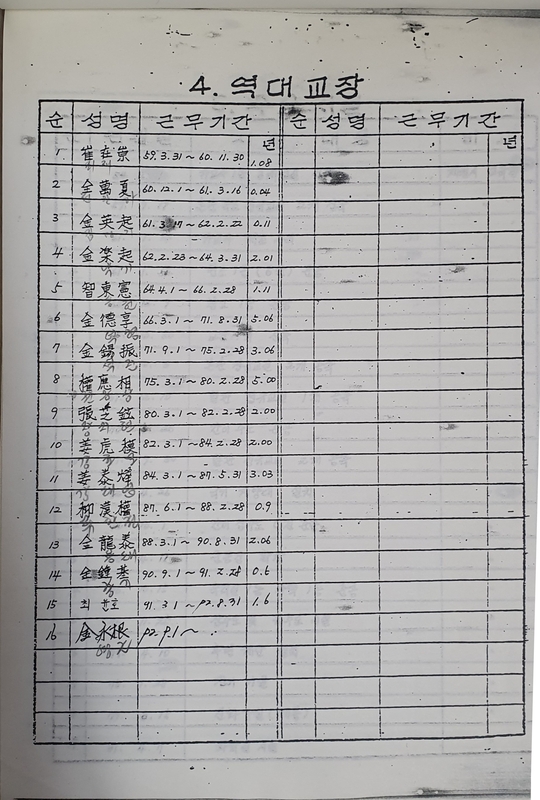 4. 역대교장
순 성명 근무기간 순 성명 근무기간
년 년
1 59.3.31~60.11.30 1.08
2 金萬夏 60.12.1~61.3.16 0.04
3 金英起 61.3.17~62.2.22 0.11
4 金榮起 62.2.23~64.3.31 2.01
5 智東憲 64.4.1~66.2.28 1.11
6 金德享 66.3.1~71.8.31 5.06
7 金錫振 71.9.1~75.2.28 3.06
8 應相 75.3.1~80.2.28 5.00
9 張芝鉉 80.3.1~82.2.28 2.00
10 姜虎 82.3.1~84.2.28 2.00
11 姜泰 84.3.1~87.5.31 3.03
12 柳漢 87.6.1~88.2.28 0.9
13 全龍泰 88.3.1~90.8.31 2.06
14 金鍾基 90.9.1~91.2.28 0.6
15 91.3.1~92.8.31 1.6
16 金永根 92.9.1~